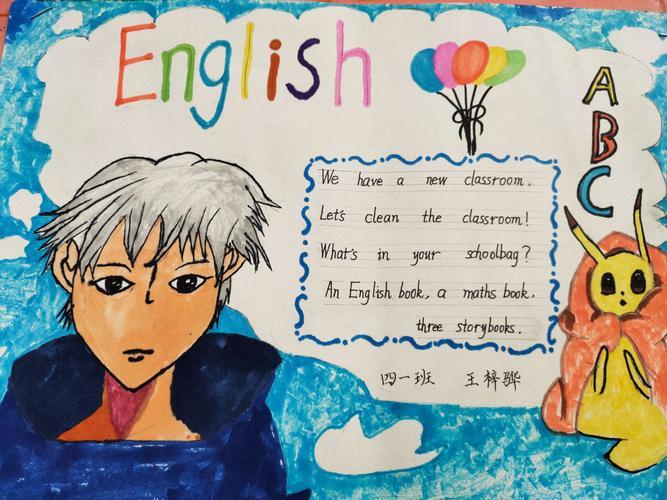 English
A
B
C
We have a new classroom.
Let's clean the classroom!
What's in your schoolbag?
An English book, a maths book,
three storybooks.
四一班 王梓骅